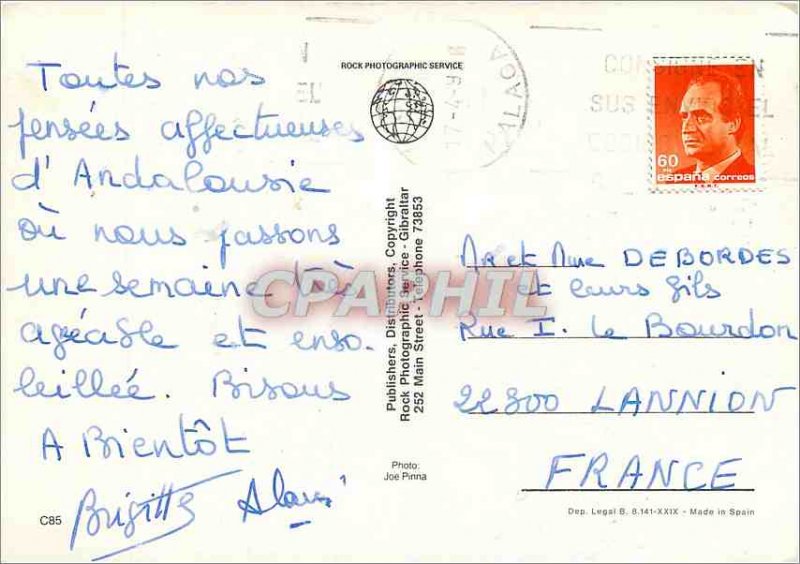 Toutes nos
pensées affectueuses
d'Andalousie
où nous passons
une semaine très
agréable et enso-
leillée. Bisous
A Bientôt
Brigitte Alain
C85
ROCK PHOTOGRAPHIC SERVICE
Publishers, Distributors, Copyright
Rock Photographic Service - Gibraltar
252 Main Street - Telephone 73853
Photo:
Joe Pinna
CPAPHIL
17-4-9
MALAGA
60
españa correos
F.N.M.T.
Mr et Mme DEBORDES
et leurs fils
Rue I. le Bourdon
22300 LANNION
FRANCE
Dep. Legal B. 8.141-XXIX - Made in Spain